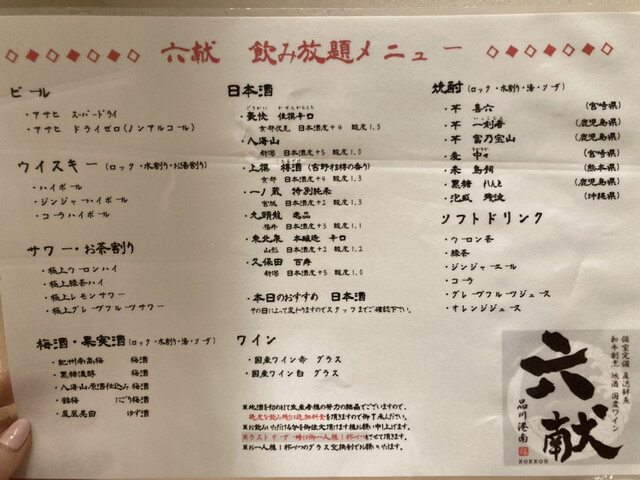 六献 飲み放題メニュー
ビール
・アサヒ スーパードライ
・アサヒ ドライゼロ(ノンアルコール)
ウイスキー(ロック・水割り・お湯割り)
・ハイボール
・ジンジャーハイボール
・コーラハイボール
サワー・お茶割り
・極上ウーロンハイ
・極上緑茶ハイ
・極上レモンサワー
・極上グレープフルーツサワー
梅酒・果実酒(ロック・水割り・湯・ソーダ)
・紀州南高梅 梅酒
・黒糖濃醇 梅酒
・八海山原酒仕込み 梅酒
・鶴梅 にごり梅酒
・鳳凰美田 ゆず酒
日本酒
・豪快 佳撰辛口
京都伏見 日本酒度+4 酸度1.3
・八海山
新潟 日本酒度+5 酸度1.0
・上撰 樽酒(吉野杉樽の香り)
京都 日本酒度+3 酸度1.3
・一ノ蔵 特別純米
宮城 日本酒度+2 酸度1.3
・九頭龍 逸品
福井 日本酒度+3 酸度1.1
・東北泉 本醸造 辛口
山形 日本酒度+2 酸度1.2
・久保田 百寿
新潟 日本酒度+5 酸度1.0
・本日のおすすめ 日本酒
その日によって変わりますのでスタッフまでご確認下さい。
ワイン
・国産ワイン赤 グラス
・国産ワイン白 グラス
※地酒を初めまして生産者様の努力の結晶でございますので、
過度な飲み残しは追加料金を頂きますので御了承ください。
※お飲みいただける分を御注文頂けます様お願い申し上げます。
※ラストオーダー時は御一人様1杯づつとさせて頂きます。
※お一人様1杯づつのグラス交換制でお願い致します。
焼酎(ロック・水割り・湯・ソーダ)
・芋 喜六 (宮崎県)
・芋 一刻者 (鹿児島県)
・芋 富乃宝山 (鹿児島県)
・麦 中々 (宮崎県)
・米 鳥飼 (熊本県)
・黒糖 れんと (鹿児島県)
・泡盛 残波 (沖縄県)
ソフトドリンク
・ウーロン茶
・緑茶
・ジンジャーエール
・コーラ
・グレープフルーツジュース
・オレンジジュース
個室完備 産直鮮魚
和牛割烹 地酒 国産ワイン
六献
品川港南
ROKKON